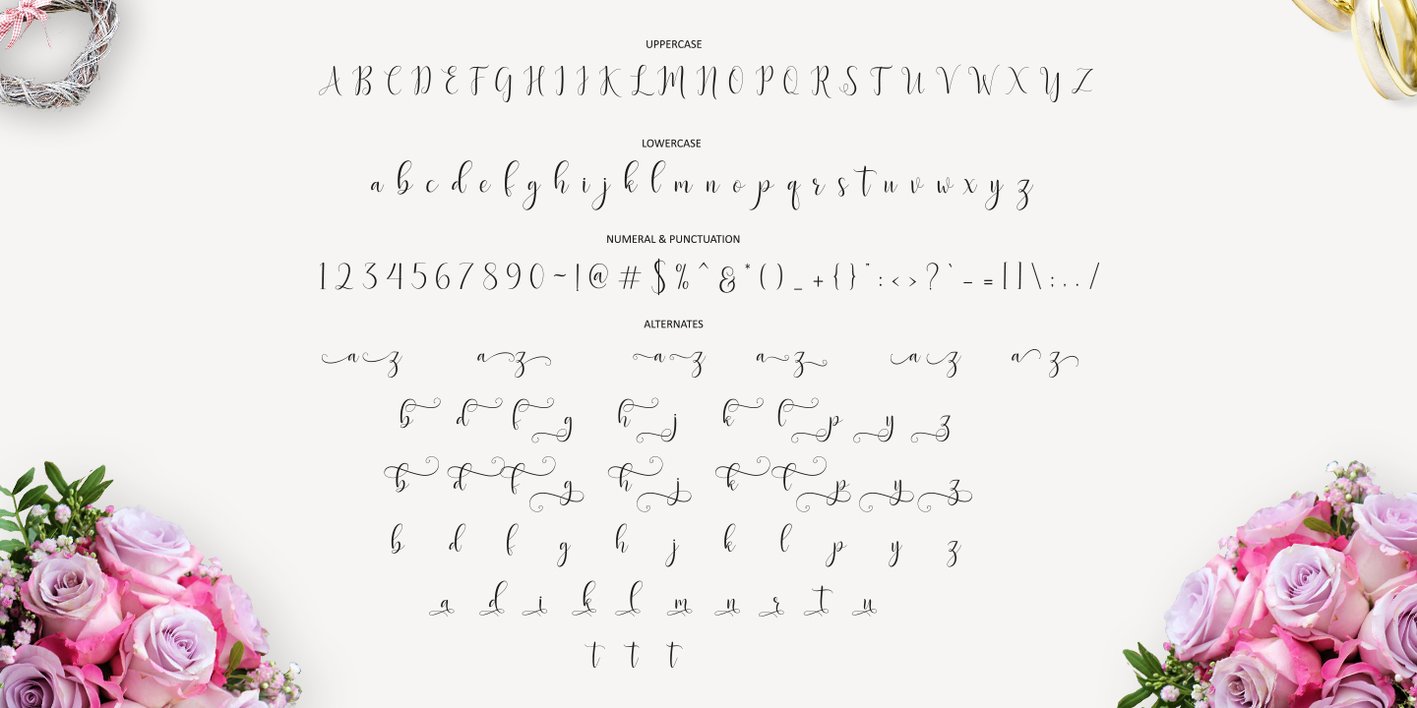 UPPERCASE
A B C D E F G H I J K L M N O P Q R S T U V W X Y Z
LOWERCASE
a b c d e f g h i j k l m n o p q r s t u v w x y z
NUMERAL & PUNCTUATION
1 2 3 4 5 6 7 8 9 0 ~ ! @ # $ % ^ & * ( ) _ + { } " : < > ? ` - = [ ] \ ; , . /
ALTERNATES
a z a z a z a z a z a z
b d f g h j k l p y z
b d f g h j k l p y z
b d f g h j k l p y z
a d i k l m n r t u
t t t